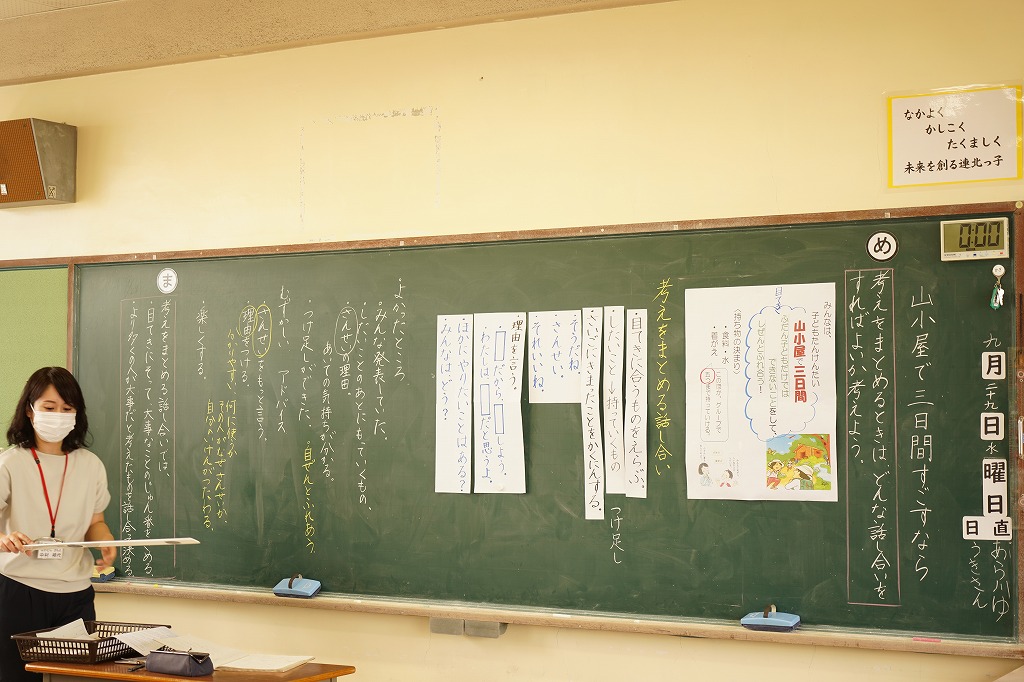 なかよく
かしこく
たくましく
未来を創る連北っ子
0:00
九月二十九日水曜日
日直
あら川ゆ
うきさん
山小屋で三日間すごすなら
め
考えをまとめるときは、どんな話し合いを
すればよいか考えよう。
みんなは、
子どもたんけんたい
山小屋で三日間
ふだん子どもだけでは
できないことをして、
しぜんとふれ合う!
〈持ち物の決まり〉
・食料・水
・着がえ
考えをまとめる話し合い
・目てきに合うものをえらぶ。
・したいこと→持っていくもの
つけ足し
・さいごにきまったことをかくにんする。
・そうだね。
・さんせい。
・それいいね。
理由を言う。
だから、しよう。
わたしは、だと思うよ。
ほかにやりたいことはある?
みんなはどう?
よかったところ
・みんな発表していた。
・したいことのあとにもっていくもの。
・さんせいの理由。
あい手の気持ちが分かる。
・つけ足しができた。
・自ぜんとふれあう
むずかしい アドバイス
・さんせいをもっと言う。
・理由をつける。
・楽しする。
ま
考えをまとめる話し合いでは、
・目てきにそって、大事なことのじゅん番をきめる。
・より多くの人が大事だと考えたものを話し合って決める。